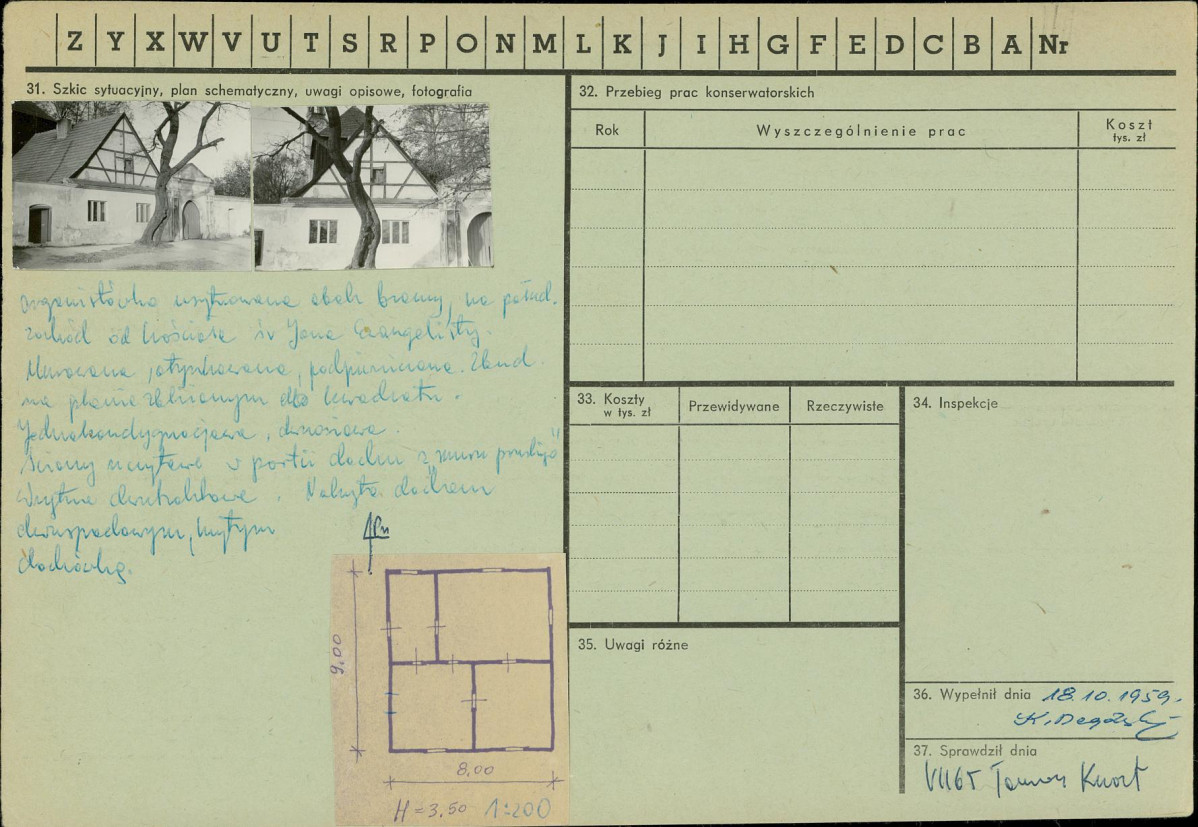 Z Y X W V U T S R P O N M L K J I H G F E D C B A Nr
31. Szkic sytuacyjny, plan schematyczny, uwagi opisowe, fotografia
Organistówka usytuowana obok bramy, na połud.
zachód od kościoła św Jana Ewangelisty.
Murowana, otynkowana, podpiwniczona. Zbud.
na planie zbliżonym do kwadratu.
Jednokondygnacjowa, dwuosiowa.
Ściany szczytowe w partii dachu z "muru pruskiego"
Wnętrze dwutraktowe. Nakryta dachem
dwuspadowym, krytym
dachówką.
Pn
9,00
8,00
H = 3,50 1:200
32. Przebieg prac konserwatorskich
Rok Wyszczególnienie prac Koszt tys. zł
33. Koszty w tys. zł Przewidywane Rzeczywiste
34. Inspekcje
35. Uwagi różne
36. Wypełnił dnia 18.10.1959.
37. Sprawdził dnia
VII65